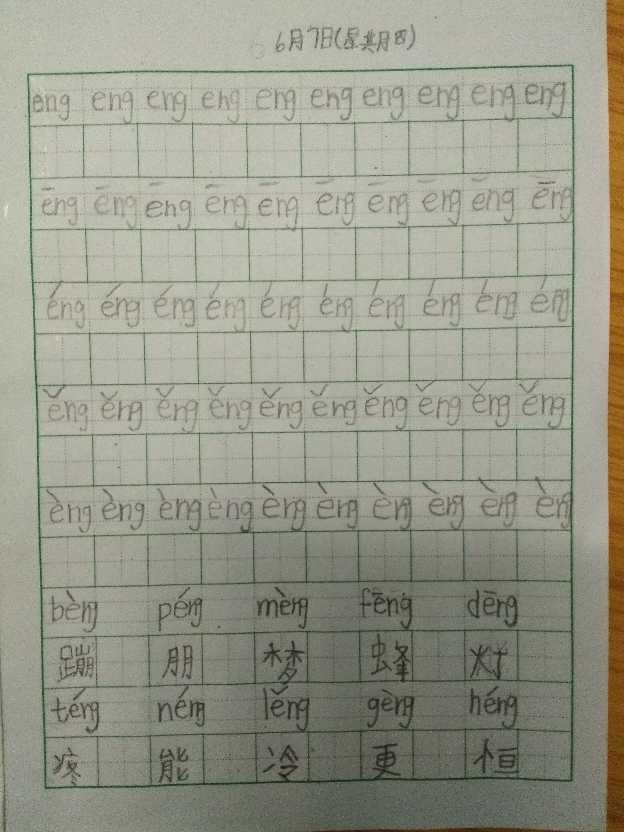 6月7日(星期四)
eng eng eng eng eng eng eng eng eng eng
ēng ēng ēng ēng ēng ēng ēng ēng ēng ēng
éng éng éng éng éng éng éng éng éng éng
ěng ěng ěng ěng ěng ěng ěng ěng ěng ěng
èng èng èng èng èng èng èng èng èng èng
bèng péng mèng fēng dēng
蹦 朋 梦 蜂 灯
téng néng lěng gèng héng
疼 能 冷 更 恒